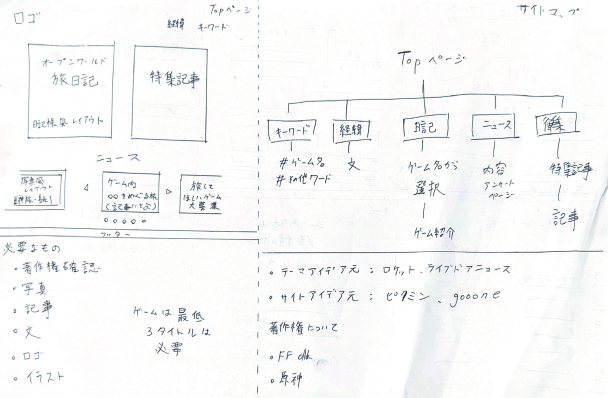 ロゴ
Topページ
経緯 キーワード
オープンワールド
旅日記
日記帳風レイアウト
特集記事
ニュース
レイアウト
ゲーム内
〇〇をめぐる旅
(記事いとぶ)
旅して
ほしいゲーム
大募集
フッター
必要なもの
・著作権確認
・写真
・記事
・文
・ロゴ
・イラスト
ゲームは最低
3タイトルは
必要
サイトマップ
Topページ
キーワード
経緯
日記
ニュース
特集
#ゲーム名
#その他ワード
文
ゲーム名から
選択
ゲーム紹介
内容
アンケート
ページ
特集記事
記事
・テーマアイデア元 : ロケット、ライブドアニュース
・サイトアイデア元 : ビタミン、gooone
著作権について
・FF
・原神